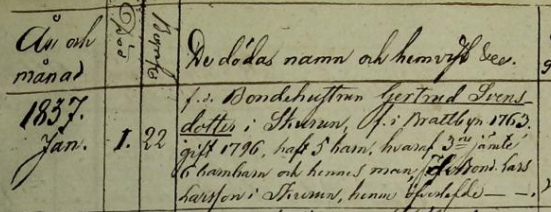 År och
månad
Död
Begrafn
De dödas namn och hemvist &c.
1837.
Jan.
1.
22
f.d. Bondehustrun Gertrud Svens
dotter i Skurun, f. i Brattbyn 1763.
gift 1796, haft 5 barn, hvaraf 3ne jämte
6 barnbarn och hennes man, Bond. Lars
Larsson i Skurun, henne öfverlefde — — .